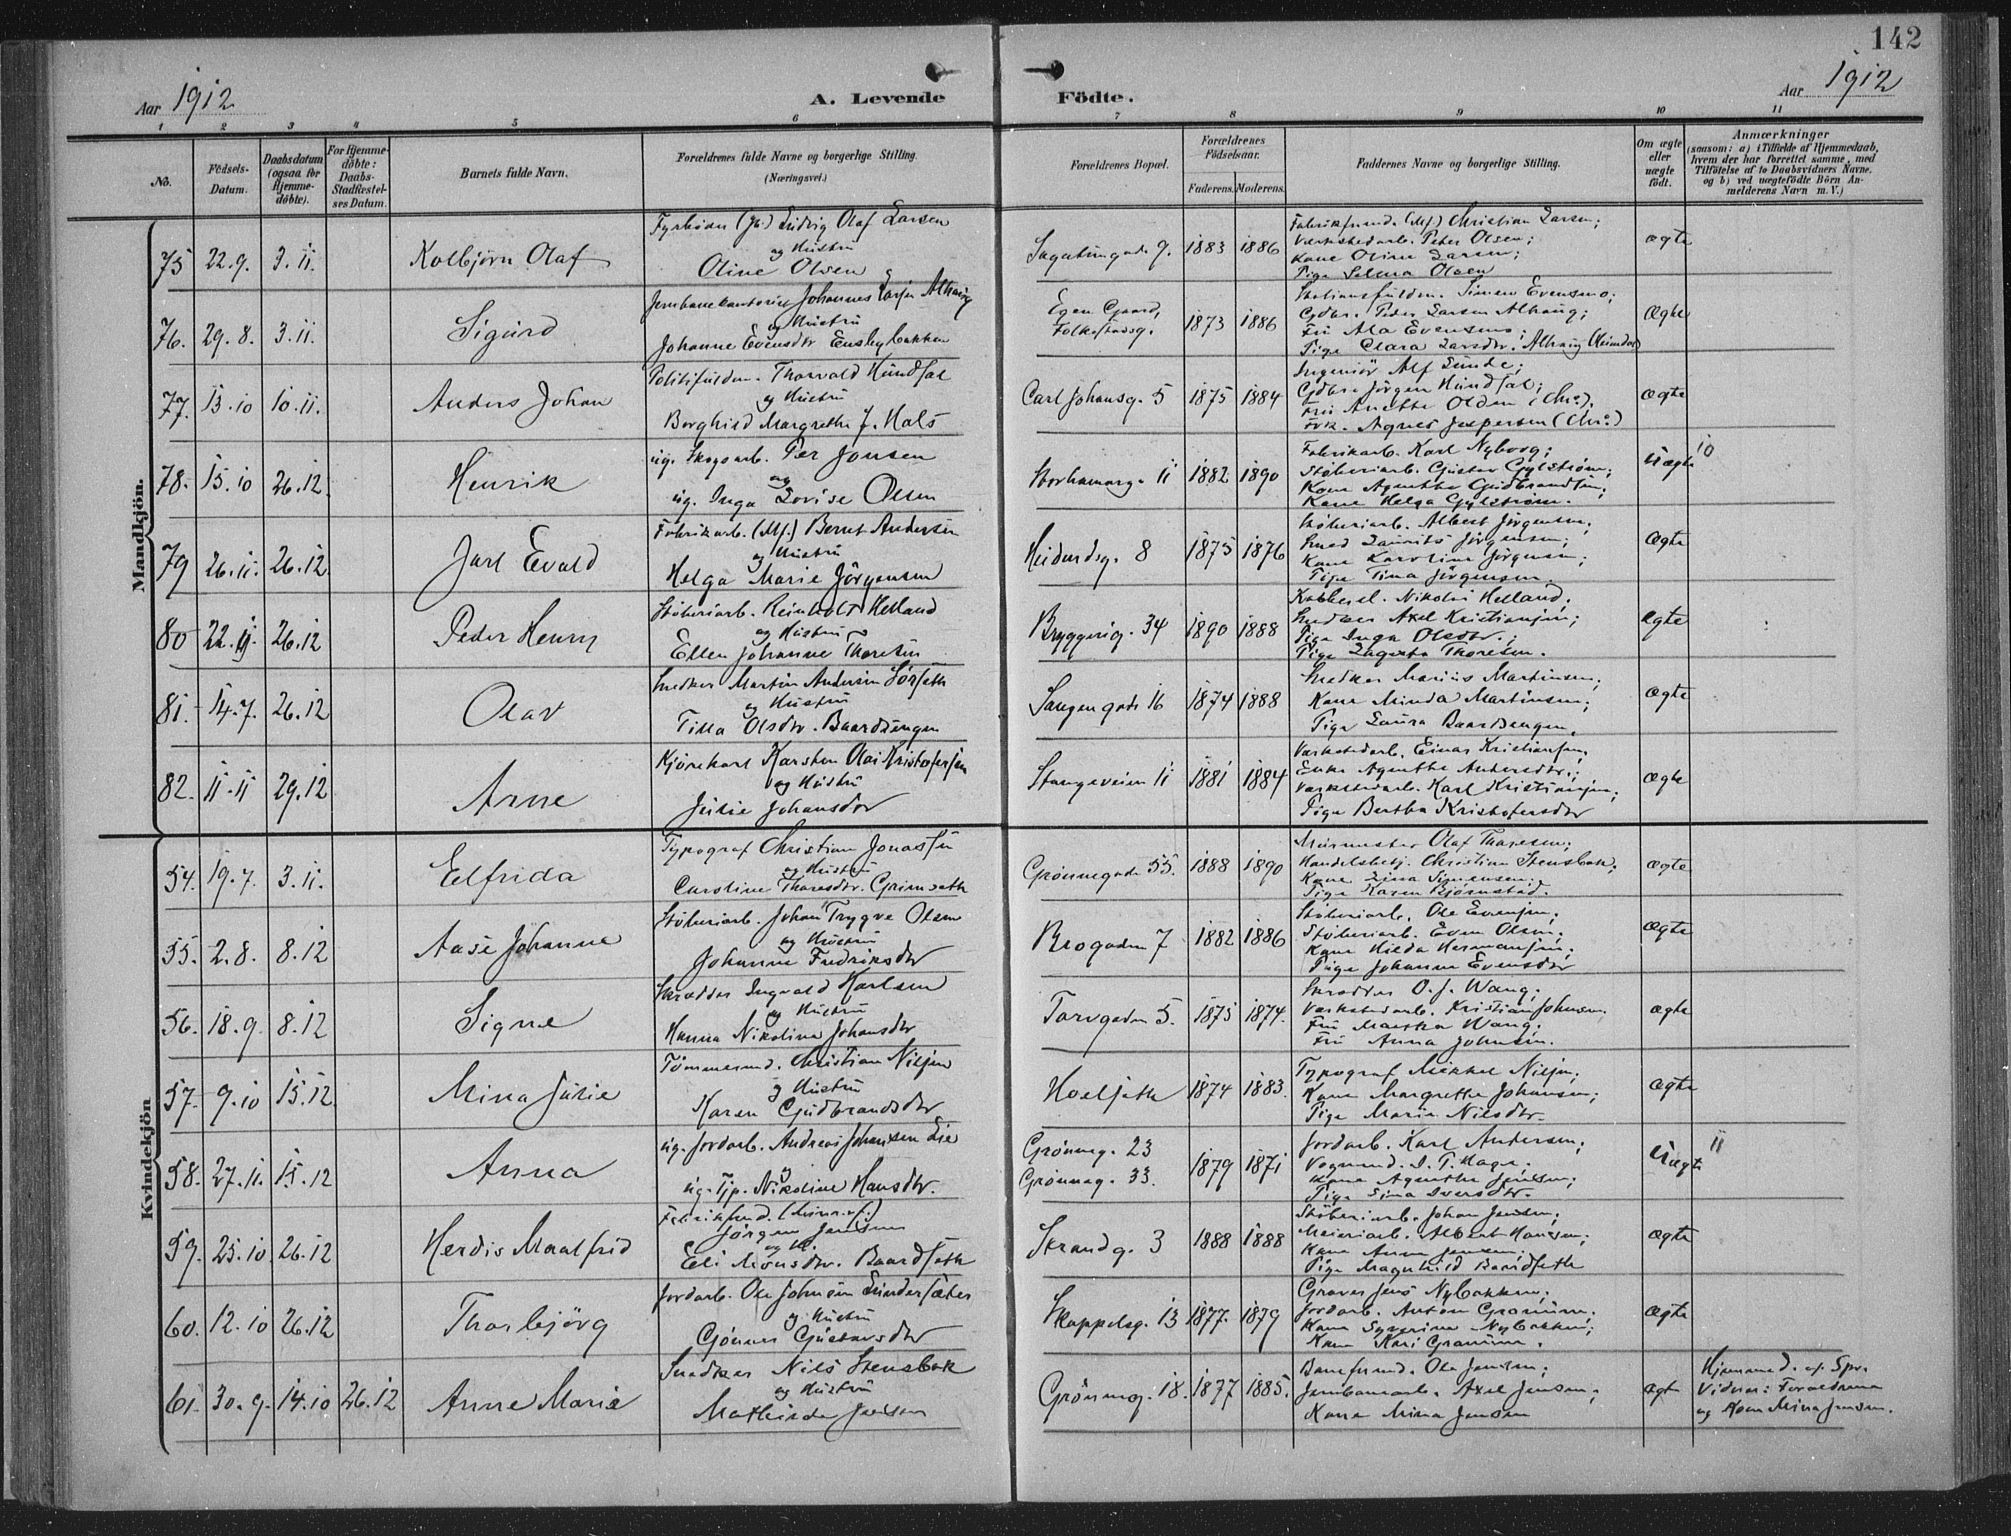 142
Aar 1912
A. Levende Födte.
Aar 1912
1 2 3 4 5 6 7 8 9 10 11
No.
Födsels-Datum.
Daabsdatum (ogsaa for Hjemme-döbte).
For Hjemme-döbte: Daabs-Stadfæstel-ses Datum.
Barnets fulde Navn.
Forældrenes fulde Navne og borgerlige Stilling. (Næringsvei.)
Forældrenes Bopæl.
Forældrenes Födselsaar.
Faderens. Moderens.
Faddernes Navne og borgerlige Stilling.
Om ægte eller uægte födt.
Anmærkninger (saasom: a) i Tilfælde af Hjemmedaab, hvem der har forrettet samme, med Tilföielse af to Daabsvidners Navne, og b) ved uægtefödte Börn An-melderens Navn m. V.)
Mandkjön.
75 22.9. 3.11. Kolbjørn Olaf
Ludvig Olaf Larsen
og Hustru
Oline Olsen
9. 1883 1886
Christian Larsen;
Værkstedarb. Peter Olsen;
Kone Oline Larsen;
Pige Selma Olsen
ægte
76. 29.8. 3.11. Sigurd
Johannes Larsen Alhaug
og Hustru
Johanne Evensdtr Ensbybakken
Egen Gaard, Folkestadsg. 1873 1886
Simen Evensmo;
Gdbr. Peder Larsen Alhaug;
Fru Ala Evensmo;
Pige Clara Larsdtr. Alhaug
ægte
77. 13.10 10.11. Anders Johan
Politifuldm. Thorvald Hundsal
og Hustru
Borghild Margrethe J. Hals
Carl Johansg. 5 1875 1884
Ingeniör Alf Lunde;
Gdbr. Jörgen Hundsal;
Fru Anette Olden (Chr.),
Frk. Agnes Jespersen (Chr.)
ægte
78. 15.10 26.12. Henrik
ug. Skogsarb. Per Jonsen
og
ug. Inga Lovise Olsen
Storhamarg. 11 1882 1890
Fabrikarb. Karl Nyborg;
Støberiarb. Gustav Gylstrøm;
Kone Agnethe Gudbrandsen;
Kone Helga Gylstrøm.
Uægte 10
79 26.11. 26.12. Jarl Evald
Fabrikarb. (Mf.) Bernt Andersen
og Hustru
Helga Marie Jörgensen
8 1875 1876
Støberiarb. Albert Jörgensen;
Smed Laurits Jörgensen;
Kone Karoline Jörgensen;
Pige Tina Jörgensen.
ægte
80 22.11. 26.12 Peder Henry
Støberiarb. Reinholt Helland
og Hustru
Ellen Johanne Thoresen
Bryggerig. 34 1890 1888
Nikolai Helland;
Snedker Axel Kristiansen;
Pige Inga Olsdtr.;
Pige Lagerta Thoresen.
ægte
81. 14.7. 26.12 Olav
Snedker Martin Andersen Sörseth
og Hustru
Tilla Olsdtr. Baardsengen
16 1874 1888
Snedker Marius Martinsen;
Kone Minda Martinsen;
Pige Laura Baardsengen.
ægte
82. 11.11 29.12 Arne
Kjörekarl Karsten Olai Kristofersen
og Hustru
Julie Johansdtr
Stangeveien 11 1881 1884
Værkstedarb. Einar Kristiansen;
Enke Agnethe Andersdtr.;
Værkstedarb. Karl Kristiansen;
Pige Bertha Kristofersdtr
ægte
Kvindekjön
54. 19.7. 3.11. Elfrida
Typograf Christian Jonassen
og Hustru
Caroline Thoresdtr. Grimseth
Grønnegaden 55. 1888 1890
Murmester Olaf Thoresen;
Handelsbetj. Christian Stensbak;
Kone Lina Simensen;
Pige Karen Bjørnstad.
ægte
55. 2.8. 8.12 Aase Johanne
Støberiarb. Johan Trygve Olsen
og Hustru
Johanne Fredriksdtr
Brogaden 7 1882 1886
Støberiarb. Ole Evensen;
Støberiarb. Even Olsen;
Kone Hilda Hermansen;
Pige Johanne Evensdtr
ægte
56. 18.9. 8.12 Signe
Skrædder Ingvald Karlsen
og Hustru
Hanna Nikoline Johansdtr
Torvgaden 5. 1875 1874.
Skrædder O. J. Wang;
Værkstedarb. Kristian Johnsen.
Fru Martha Wang;
Fru Anna Johnsen.
ægte
57. 9.10 15.12. Mina Julie
Tömmermd. Christian Nilsen
og Hustru
Karen Gudbrandsdtr
Hoelseth 1874 1883.
Typograf Mikkel Nilsen;
Kone Margrethe Johansen;
Pige Marie Nilsdtr.
ægte
58. 27.11. 15.12 Anna
ug. Jordarb. Andreas Johansen Lie
og
ug. Tjp. Nikoline Hansdtr.
Grönneg. 23
Grönneg. 33. 1879 1871
Jordarb. Karl Andersen;
Vognmd. I. T. Hagen;
Kone Agnethe Jensen;
Pige Sina Iversdtr.
Uægte 11
59. 25.10. 26.12 Herdis Maalfrid
Jörgen Jensen
og H.
Eli Monsdtr. Baardseth
Strandg. 3 1888 1888
Støberiarb. Johan Jensen;
Meieriarb. Albert Hansen;
Kone Anna Jensen;
Pige Magnhild Baardseth
ægte
60. 12.10 26.12 Thorbjörg
Jordarb. Ole Johnsen Sundersæter
og Hustru
Gjönner Gustavsdtr
Skappelsg. 13 1877. 1879
Graver Jens Nybakken;
Jordarb. Anton Granum;
Kone Syverine Nybakken;
Kone Kari Granum.
ægte
61. 30.9. 14.10 26.12 Anne Marie
Snedker Nils Stensbak
og Hustru
Mathinda Jensen
Grönneg. 18. 1877 1885.
Banefmd. Ole Jensen;
Jernbanearb. Axel Jensen;
Kone Mina Jensen
ægte
Hjemmed. af Spr.
Vidner: Forældrene
og Kone Mina Jensen.